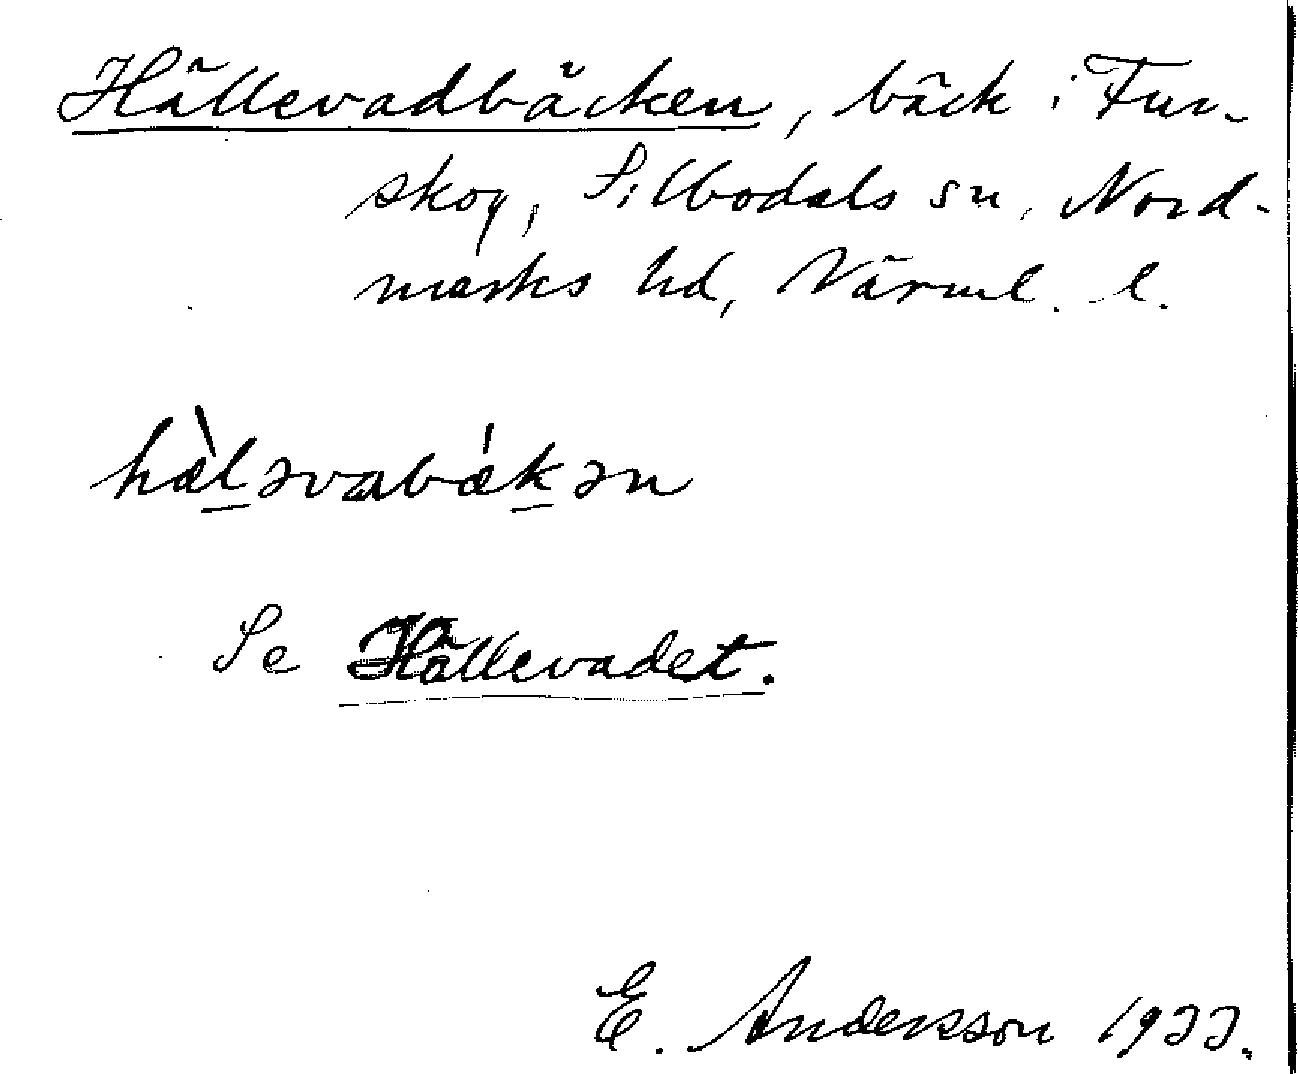 Hällevadbäcken, bäck i Fur-
skog, Silbodals sn, Nord-
marks hd, Värml. l.
hæ̀l̲əvabǽk̲ən
Se Hällevadet.
E. Andersson 1933.